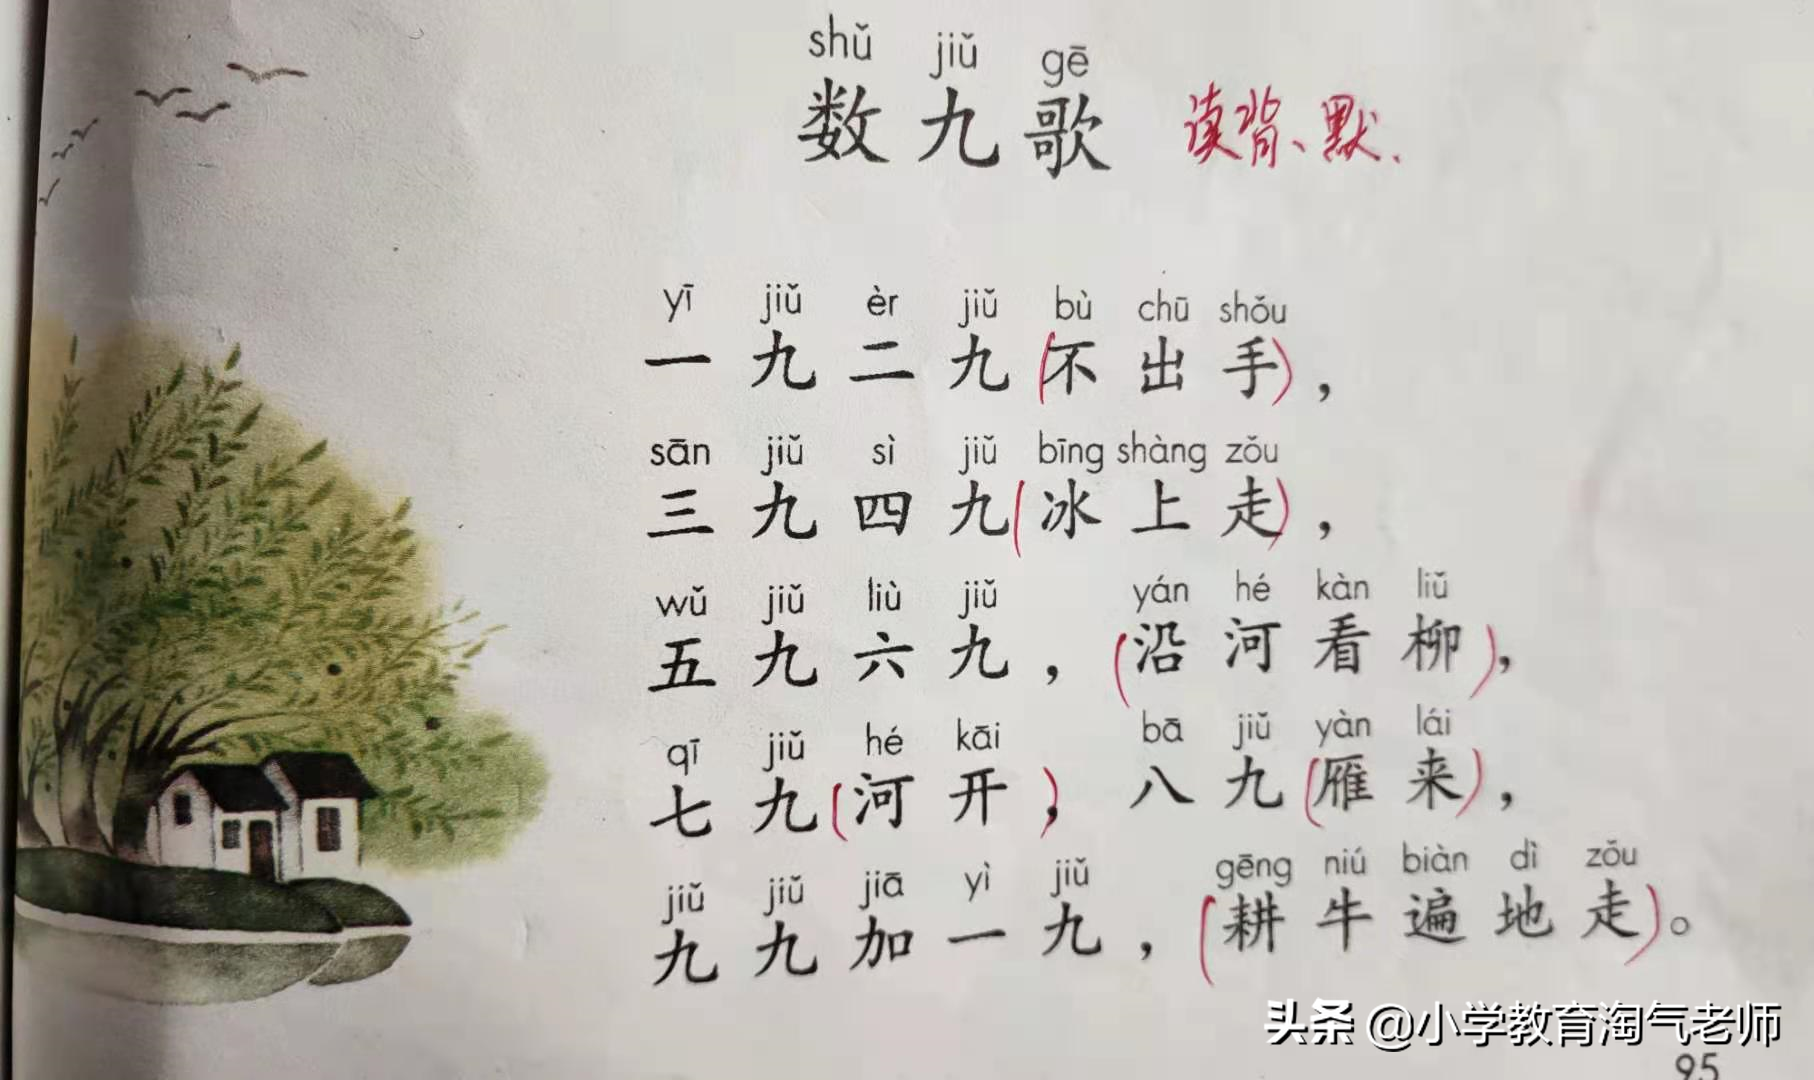 shǔ jiǔ gē
数九歌 读背、默、
yī jiǔ èr jiǔ bù chū shǒu
一九二九(不出手)，
sān jiǔ sì jiǔ bīng shàng zǒu
三九四九(冰上走)，
wǔ jiǔ liù jiǔ yán hé kàn liǔ
五九六九，(沿河看柳)，
qī jiǔ hé kāi bā jiǔ yàn lái
七九(河开，)八九(雁来)，
jiǔ jiǔ jiā yì jiǔ gēng niú biàn dì zǒu
九九加一九，(耕牛遍地走)。
头条 @小学教育淘气老师
95